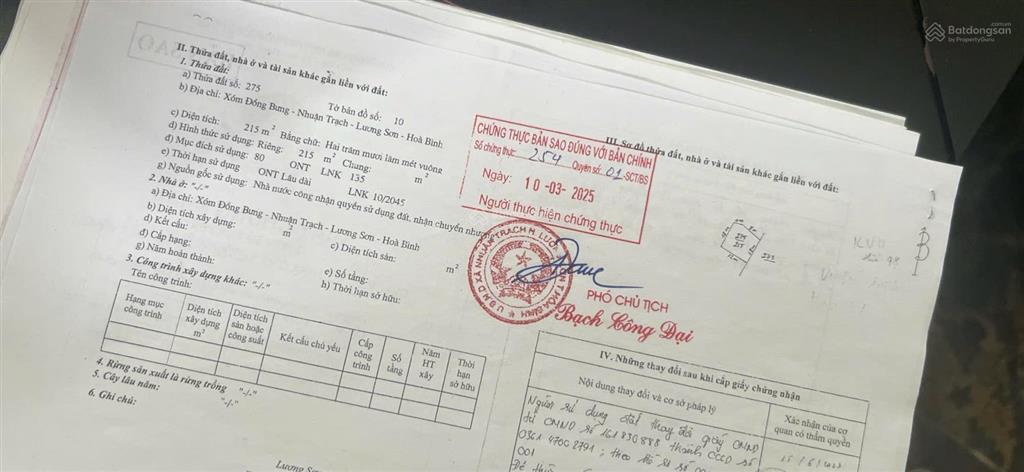 Batdongsan
.com.vn
by PropertyGuru
II. Thửa đất, nhà ở và tài sản khác gắn liền với đất:
1. Thửa đất:
a) Thửa đất số: 275
Tờ bản đồ số: 10
b) Địa chỉ: Xóm Đồng Bưng - Nhuận Trạch - Lương Sơn - Hoà Bình
c) Diện tích: 215 m² Bằng chữ: Hai trăm mươi lăm mét vuông
d) Hình thức sử dụng: Riêng: 215 m² Chung: m²
đ) Mục đích sử dụng: 80 ONT LNK 135
e) Thời hạn sử dụng ONT Lâu dài LNK 10/2045
g) Nguồn gốc sử dụng: Nhà nước công nhận quyền sử dụng đất, nhận chuyển
2. Nhà ở: "-/-"
a) Địa chỉ: Xóm Đồng Bưng - Nhuận Trạch - Lương Sơn - Hoà Bình
b) Diện tích xây dựng: m² c) Diện tích sàn: m²
d) Kết cấu:
đ) Cấp hạng: e) Số tầng:
g) Năm hoàn thành: h) Thời hạn sở hữu:
3. Công trình xây dựng khác: "-/-"
Tên công trình:
Hạng mục công trình
Diện tích xây dựng m²
Diện tích sàn hoặc công suất
Kết cấu chủ yếu
Cấp công trình
Số tầng
Năm HT xây
Thời hạn sở hữu
4. Rừng sản xuất là rừng trồng "-/-"
5. Cây lâu năm: "-/-"
6. Ghi chú:
CHỨNG THỰC BẢN SAO ĐÚNG VỚI BẢN CHÍNH
Số chứng thực: 254 Quyển số: 01-SCT/BS
Ngày: 10-03-2025
Người thực hiện chứng thực
PHÓ CHỦ TỊCH
Bạch Công Đại
III. Sơ đồ thửa đất, nhà ở và tài sản khác gắn liền với đất:
IV. Những thay đổi sau khi cấp giấy chứng nhận
Nội dung thay đổi và cơ sở pháp lý
Xác nhận của cơ quan có thẩm quyền
Người sử dụng đất thay đổi giấy CMND
từ CMND số 161830888 thành CCCD số
001